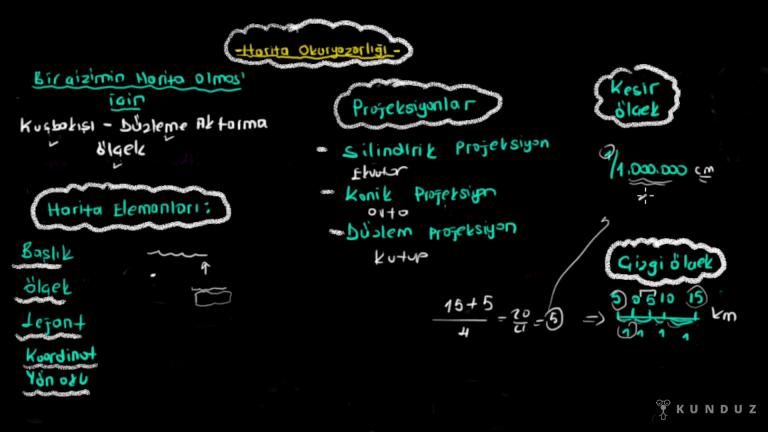 -Harita Okuryazarlığı-
Bir çizimin Harita Olması
için
Kuşbakışı - Düzleme Aktarma
ölçek
Harita Elemanları:
Başlık
ölçek
Lejant
Koordinat
Yön oku
Projeksiyonlar
- Silindirik Projeksiyon
Ekvator
- Konik Projeksiyon
orta
- Düzlem Projeksiyon
Kutup
15+5
4
= 20
= 5 =>
Kesir
ölçek
1/1.000.000 cm
Çizgi ölçek
5 0 5 10 15
km
1 1 1 1
KUNDUZ